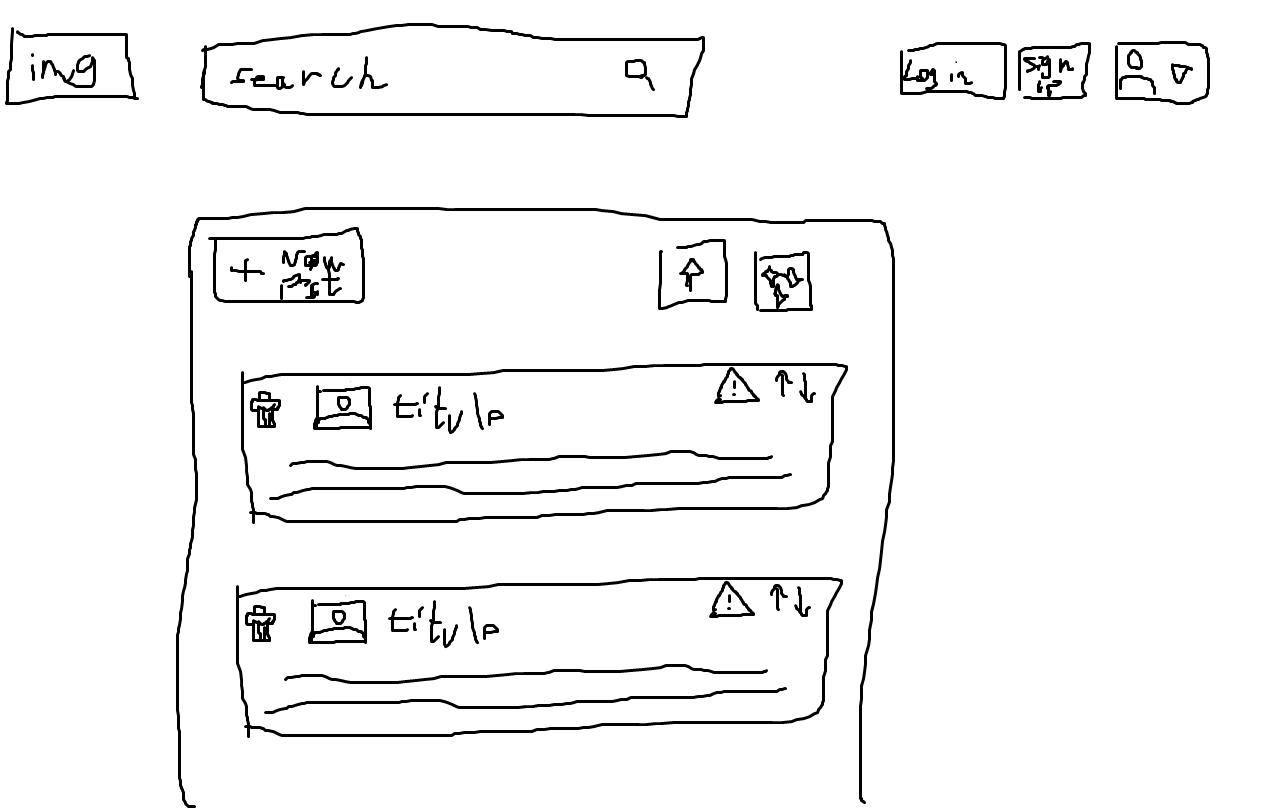 img
search
Log in
sign
up
+ New
Post
title
title